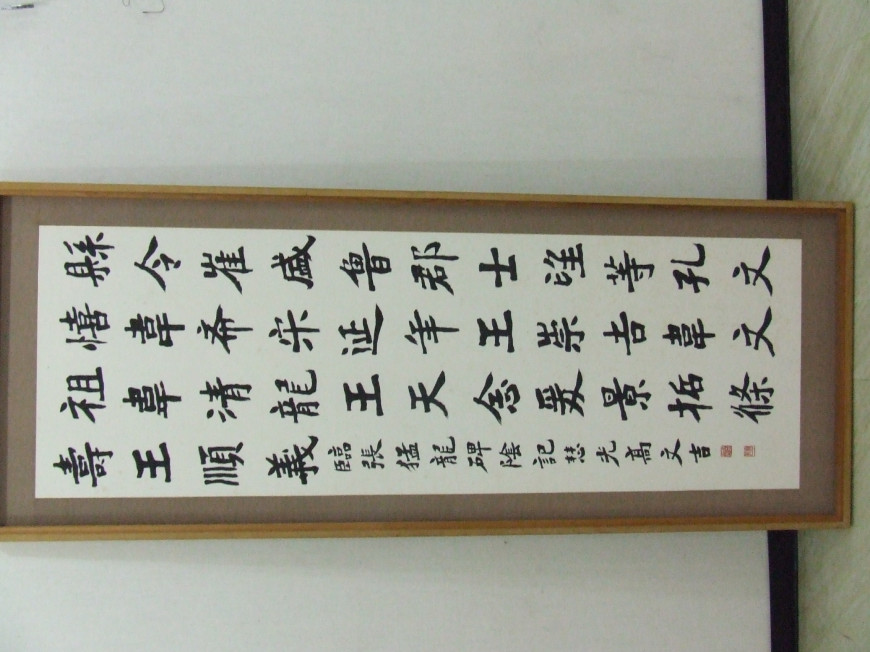 縣令崔盛魯郡士望等孔文
憘韋希宋延年王崇吉韋文
祖韋清龍王天念爰景拓條
壽王順義 臨張猛龍碑陰記 慧光高文吉